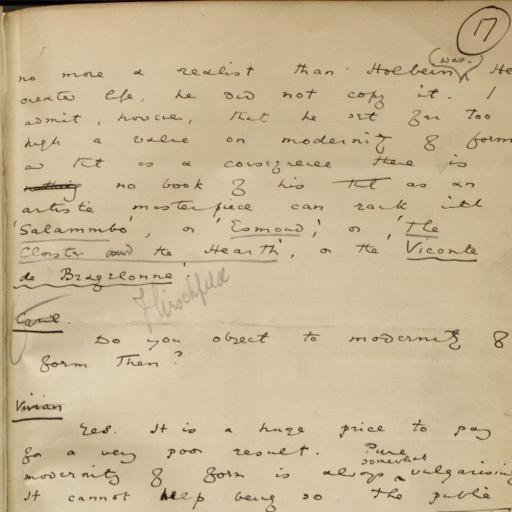 17
was.
no more a realist than Holbein. He
creates life, he did not copy it. I
admit, however, that he set far too
high a value on modernity of form
and that as a consequence there is
nothing no book of his that as an
artistic masterpiece can rank with
'Salammbo', or 'Esmond', or 'The
Cloister and the Hearth', or the Vicomte
de Bragelonne'.
Hirschfeld
Cyril.
Do you object to modernity of
form then?
Vivian
Yes. It is a huge price to pay
for a very poor result. Pure
somewhat
modernity of form is always vulgarising
It cannot help being so. The public